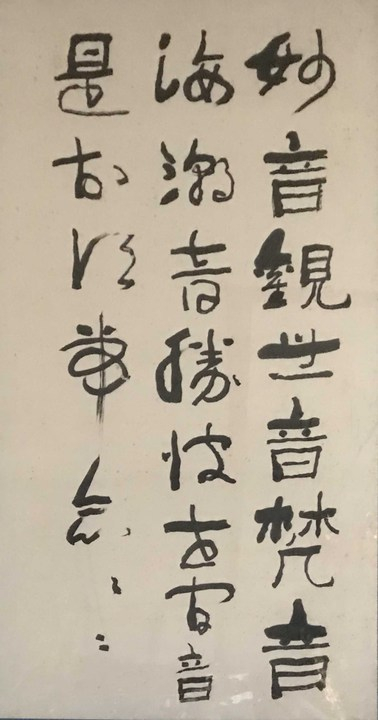 妙音觀世音梵音
海潮音勝彼世間音
是故須常念〻〻